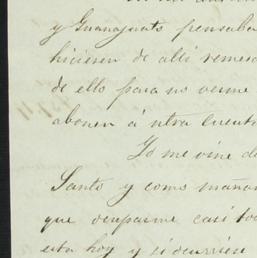 y Guanajuato pensaba
hiciesen de allí remesa
de ello para no verme
abonen á ntra cuenta
Yo me vine de
Santo y como mañan
que ocuparme casi tod
esta hoy y si ocurrien